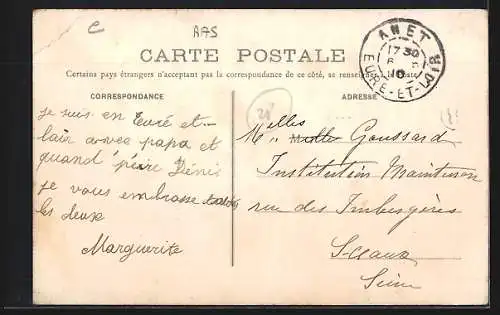 e
AAS
CARTE POSTALE
Certains pays étrangers n'acceptant pas la correspondance de ce côté, se renseigner à la Poste
CORRESPONDANCE
ADRESSE
ANET
17 30
10
EURE-ET-LOIR
je suis en Euré et-
loir avec papa et
quand père Dénis
je vous embrasse
les deux
Marguerite
Melles
Goussard
Institution Maintenon
rue des Imbergères
Sceaux
Seine